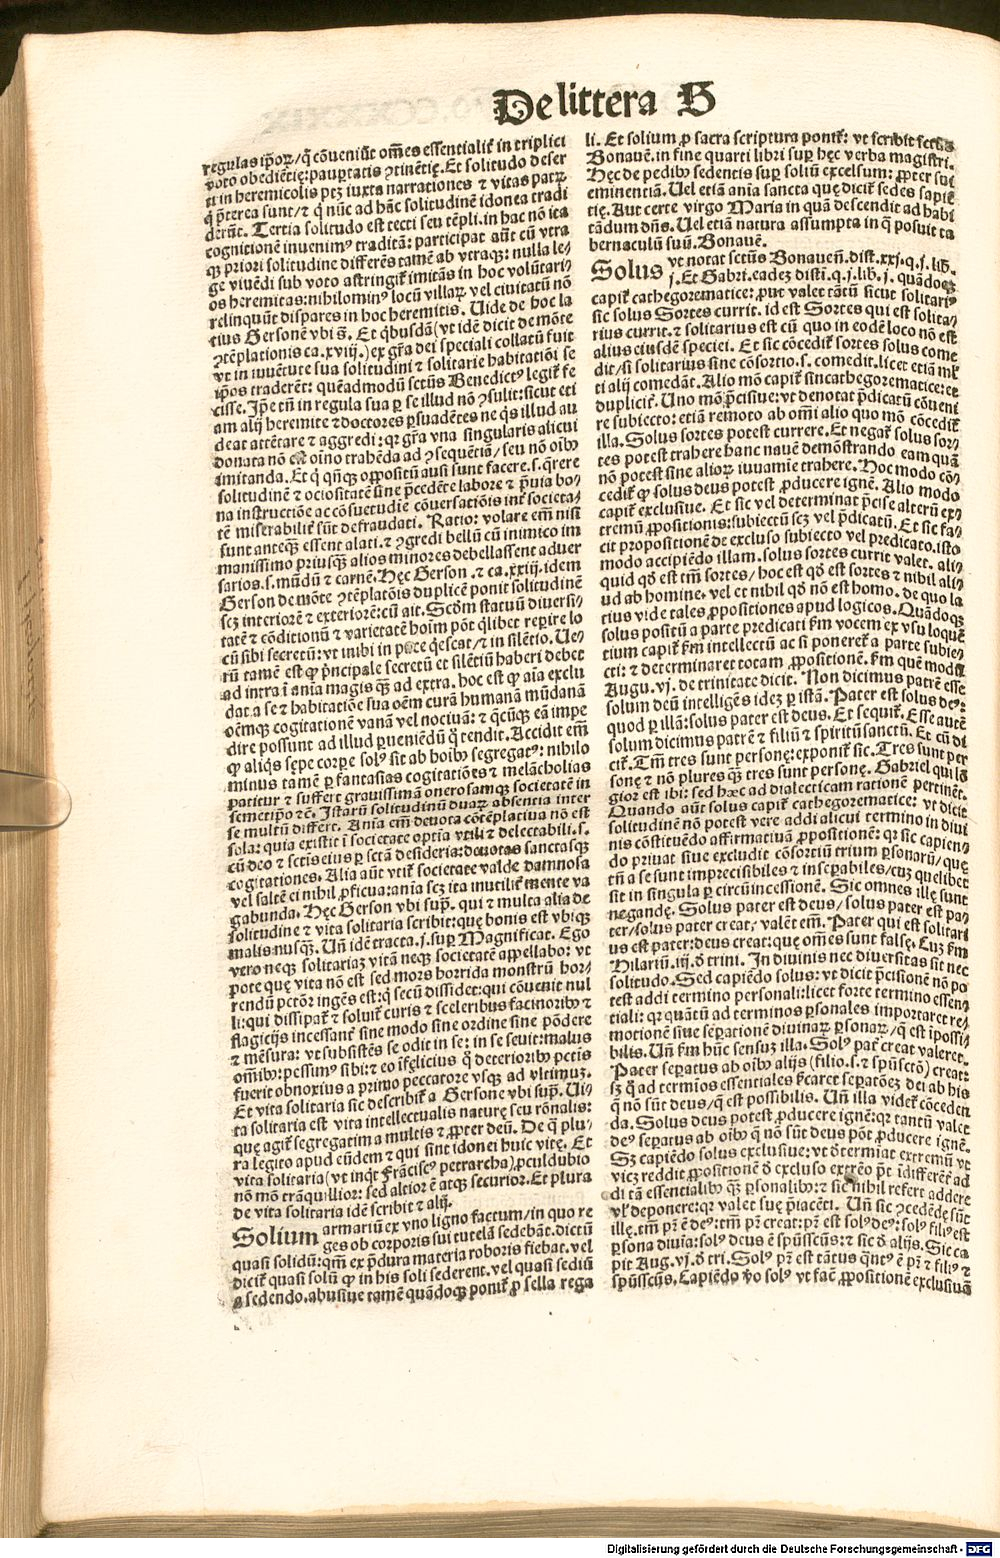 De littera S
regulas ip̄oꝝ/q̄ cōueniūt om̄es essentialiť in triplici
voto obediētię: pauꝑtatis ⁊tinētię. Et solitudo deser
ti in heremicolis ptꝫ iuxta narrationes ⁊ vitas patꝝ
q̄ p̄terea sunt/⁊ q̄ nūc ad hāc solitudinē idonea tradi
derūt. Tertia solitudo est tecti seu tēpli. in hac nō ita
cognitionē inuenimꝰ traditā: participat aūt cū vtra
qꝫ priori solitudine differēs tamē ab vtraqꝫ: nulla le⸗
ge viuēdi sub voto astringiť imitās in hoc volūtari⸗
os heremitas: nihilominꝰ locū villaꝝ vel ciuitatū nō
relinquūt dispares in hoc heremitis. Uide de hoc la
tius Gersonē vbi s̄. Et q̄busdā (vt idē dicit de mōte
⁊tēplationis ca. xviij.) ex gr̄a dei speciali collatū fuit
vt in iuuētute sua solitudini ⁊ solitarie habitatiōi se
ip̄os traderēt: quēadmodū sctūs Benedictꝰ legiť fe
cisse. Ip̄e tn̄ in regula sua ꝑ se illud nō ⁊sulit: sicut eti
am alij heremite ⁊ doctores ꝑsuadētes ne q̄s illud au
deat attētare ⁊ aggredi: qꝛ gr̄a vna singularis alicui
donata nō oīno trahēda ad ⁊sequētiā/ seu nō oībꝰ
imitanda. Et q̄ qn̄qꝫ oppositū ausi sunt facere. s. q̄rere
solitudinē ⁊ ociositatē sine p̄cedēte labore ⁊ p̄uia bo⸗
na instructiōe ac cōsuetudie cōuersatiōis inť societa⸗
tē miserabiliť sūt defraudati. Ratio: volare em̄ nisi
sunt anteqꝫ essent alati. ⁊ ⁊gredi bellū cū inimico im
manissimo priusqꝫ alios minores debellassent aduer
sarios. s. mūdū ⁊ carnē. Hęc Gerson. ⁊ ca. xxiij. idem
Gerson de mōte ⁊tēplatōis duplicē ponit solitudinē
scꝫ interiorē ⁊ exteriorē: cū ait. Scd̄m statuū diuersi⸗
tatē ⁊ cōditionū ⁊ varietatē hoīm pōt q̄libet reꝑire lo
cū sibi secretū: vt inibi in pace q̄escat/⁊ in silētio. Ue⸗
rū tamē est ꝙ p̄ncipale secretū et silētiū haberi debet
ad intra ī aīa magis qꝫ ad extra. hoc est ꝙ aīa exclu
dat a se ⁊ habitatiōe sua oēm curā humanā mūdanā
oēmqꝫ cogitationē vanā vel nociuā: ⁊ q̄cūqꝫ eā impe
dire possunt ad illud ꝑueniēdū q̄ tendit. Accidit em̄
ꝙ aliq̄s sępe corꝑe solꝰ sit ab hoībꝰ segregatꝰ: nihilo
minus tamē ꝑ fantasias cogitatiōes ⁊ melācholias
patitur ⁊ suffert grauissimā onerosamqꝫ societatē in
semetip̄o ⁊ē. Istarū solitudinū duaꝝ absentia inter
se multū differt. Anīa em̄ deuota cōtēplatiua nō est
sola: quia existit ī societate optīa vtili ⁊ delectabili. s.
cū deo ⁊ sctis eius ꝑ sctā desideria: deuotas sanctasqꝫ
cogitationes. Alia aūt vtiť societate valde damnosa
vel saltē ei nihil ꝓficua: anīa scꝫ ita inutiliť mente va
gabunda. Hęc Gerson vbi supͣ. qui ⁊ multa alia de
solitudine ⁊ vita solitaria scribit: quę bonis est vbiqꝫ
malis nusqꝫ. Un̄ idē tracta. j. suꝑ Magnificat. Ego
vero neqꝫ solitariaꝫ vitā neqꝫ societatē appellabo: vt
pote quę vita nō est sed mors horrida monstrū hor⸗
rendū pctōr ingēs est: q̄ secū dissidet: qui cōuenit nul
li: qui dissipať ⁊ soluiť curis ⁊ sceleribus facinoribꝰ ⁊
flagicijs incessanť sine modo sine ordine sine pōdere
⁊ mēsura: vt subsistēs se odit in se: in se seuit: malus
om̄ibꝰ: pessimꝰ sibi: ⁊ eo īfęlicius q̄ deterioribꝰ pctis
fuerit obnoxius a primo peccatore vsqꝫ ad vltimuꝫ.
Et vita solitaria sic describiť a Gersone vbi supͣ. Ui⸗
ta solitaria est vita intellectualis naturę seu rōnalis:
quę agiť segregatim a multis ⁊ ꝓpter deū. De q̄ plu⸗
ra legito apud eūdem ⁊ qui sint idonei huic vitę. Et
vita solitaria (vt inqͭ Frāciscꝰ petrarcha) ꝓculdubio
nō mō trāquillior: sed altior ē atqꝫ securior. Et plura
de vita solitaria idē scribit ⁊ alij.
Solium armariū ex vno ligno factum/in quo re
ges ob corporis sui tutelā sedebāt. dictū
quasi solidū: qm̄ ex p̄dura materia roboris fiebat. vel
diciť quasi solū ꝙ in his soli sederent. vel quasi sediū
a sedendo. abusiue tamē quādoqꝫ poniť ꝓ sella rega
li. Et solium ꝓ sacra scriptura poniť: vt scribit sctūs
Bonauē. in fine quarti libri suꝑ hęc verba magistri.
Hęc de pedibꝰ sedentis suꝑ soliū excelsum: ꝓpter sui
eminentiā. Uel etiā anīa sancta quę diciť sedes sapiē
tię. Aut certe virgo Maria in quā descendit ad habi
tādum dn̄s. Uel etiā natura assumpta in q̄ posuit ta
bernaculū suū. Bonauē.
Solus vt notat sctūs Bonauen. dist. xxj. q. j. lib.
j. Et Gabri. eadeꝫ disti. q. j. lib. j. quādoqꝫ
capiť cathegorematice: ꝓut valet tātū sicut solitariꝰ
sic solus Sortes currit. id est Sortes qui est solita⸗
rius currit. ⁊ solitarius est cū quo in eodē loco nō est
alius eiusdē speciei. Et sic cōcediť sortes solus come
dit/si solitarius sine cōsortio. s. comedit. licet etiā ml̄
ti alij comedāt. Alio mō capiť sincathegorematice: et
dupliciť. Uno mō p̄cisiue: vt denotat p̄dicatū cōueni
re subiecto: etiā remoto ab om̄i alio quo mō cōcediť
illa. Solus sortes potest currere. Et negať solus sor⸗
tes potest trahere hanc nauē demōstrando eam quā
nō potest sine alioꝝ iuuamie trahere. Hoc modo cō⸗
cediť ꝙ solus deus potest ꝓducere ignē. Alio modo
capiť exclusiue. Et sic vel determinat p̄cise alterū ex⸗
tremū ꝓpositionis: subiectū scꝫ vel p̄dicatū. Et sic fa⸗
cit propositionē de excluso subiecto vel predicato. isto
modo accipiēdo illam. solus sortes currit valet. ali⸗
quid qd̄ est tm̄ sortes/hoc est qd̄ est sortes ⁊ nibil ali⸗
ud ab homine. vel et nihil qd̄ nō est homo. de quo la
tius vide tales ꝓpositiones apud logicos. Quādoqꝫ
solus positū a parte predicati ẜm vocem ex vsu loquē
tium capiť ẜm intellectū ac si ponereť a parte subie⸗
cti: ⁊ determinaret totam ꝓpositionē. ẜm quē modū
Augu. vj. de trinitate dicit. Non dicimus patrē esse
solum deū intelligēs idez ꝑ istā. Pater est solus deꝰ:
quod ꝑ illā: solus pater est deus. Et sequiť. Esse autē
solum dicimus patrē ⁊ filiū ⁊ spiritūsanctū. Et cū di
ciť. Tm̄ tres sunt personę: exponiť sic. Tres sunt per
sonę ⁊ nō plures qꝫ tres sunt personę. Gabriel qui lō
gior est ibi: sed hæc ad dialecticam rationē pertinēt.
Quando aūt solus capiť cathegorematice: vt dicit
solitudinē nō potest vere addi alicui termino in diui
nis cōstituēdo affirmatiuā ꝓpositionē: qꝛ sic capien⸗
do priuat siue excludit cōsortiū trium ꝑsonarū/quę
tn̄ a se sunt imprecisibiles ⁊ inseꝑabiles/cuꝫ quelibet
sit in singula ꝑ circūincessionē. Sic omnes illę sunt
negandę. Solus pater est deus/solus pater est pa⸗
ter/solus pater creat/ valēt em̄. Pater qui est solitari
us est pater: deus creat: que om̄es sunt falsę. Cuꝫ ẜm
Hilariū. iij. ō trini. In diuinis nec diuersitas sit nec
solitudo. Sed capiēdo solus: vt dicit p̄cisionē nō po
test addi termino personali: licet forte termino essen⸗
tiali: qꝛ quātū ad terminos ꝑsonales importaret re⸗
motionē siue seꝑationē diuinaꝝ ꝑsonaꝝ/q̄ est ipossi⸗
bilis. Un̄ ẜm hūc sensuꝫ illa. Solꝰ pať creat valeret.
Pater seꝑatus ab oībꝰ alijs (filio. s. ⁊ spūsctō) creat:
sꝫ q̄ ad termīos essentiales ẜcaret seꝑatōeꝫ dei ab his
q̄ nō sūt deus/q̄ est possibilis. Un̄ illa videť cōceden
da. Solus deus potest ꝓducere ignē: qꝛ tantū valet
deꝰ seꝑatus ab oībꝰ q̄ nō sūt deus pōt ꝓducere ignē.
Sꝫ capiēdo solus exclusiue: vt ōtermīat extremū vt
vicꝫ reddit ꝓpositionē ō excluso extrēo pͭ īdifferēť ad
di tā essentialibꝰ qꝫ ꝑsonalibꝰ: ⁊ sic nihil refert addere
vl̓ deponere: qꝛ valet suę p̄iacēti. Un̄ sic ⁊cedēdę sūt
illę. tm̄ pr̄ ē deꝰ: tm̄ pr̄ creat: pr̄ est solꝰ deꝰ: solꝰ filiꝰ est
ꝑsona diuīa: solꝰ deus ē spūsscūs: ⁊ sic ō alijs. Sic ca
pit Aug. vj. ō tri. Solꝰ pr̄ est tātus q̄ntꝰ ē pr̄ ⁊ filiꝰ ⁊
spūsscūs. Capiēdo ꝟo solꝰ vt facͭ ꝓpositionē exclusiuā
Digitalisierung gefördert durch die Deutsche Forschungsgemeinschaft - DFG